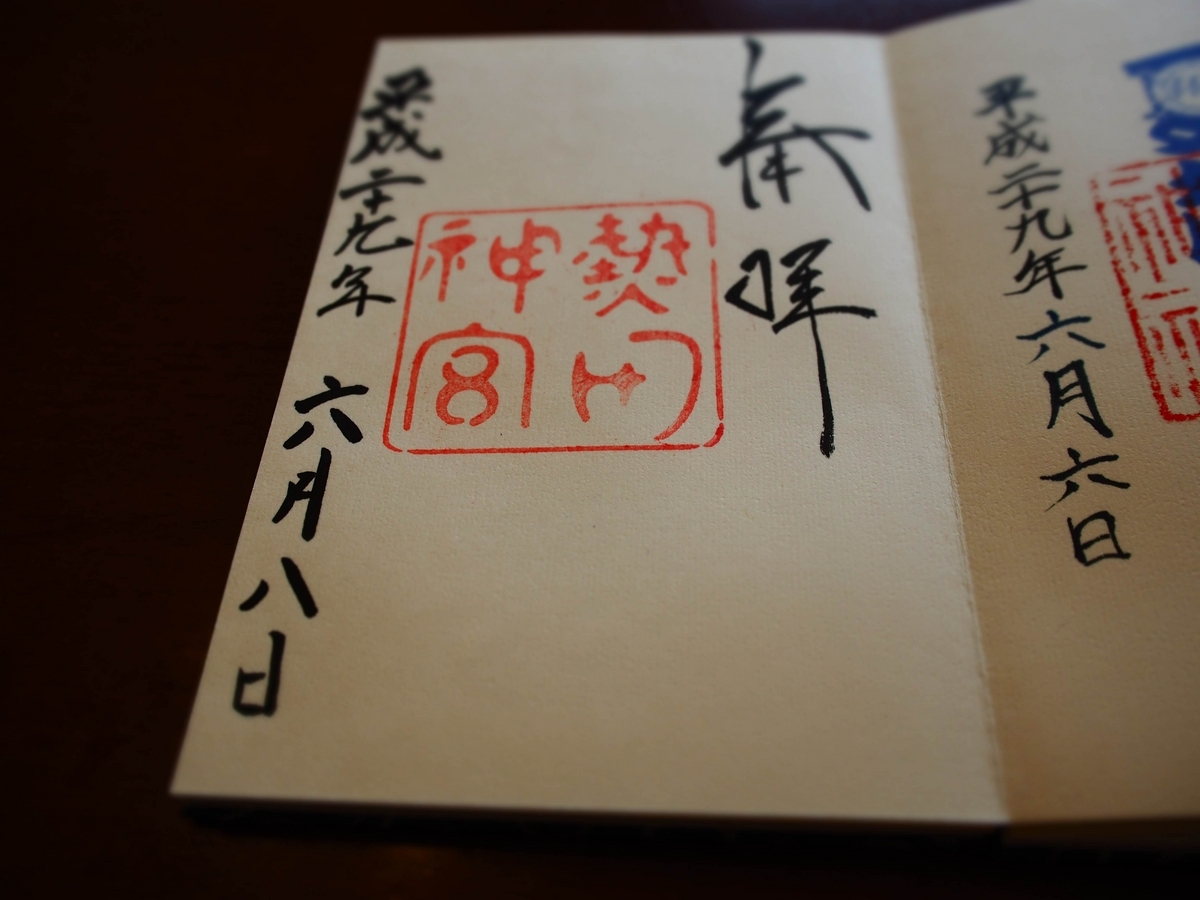 平成二十九年六月六日
奉拝
熱田神宮
平成二十九年 六月八日